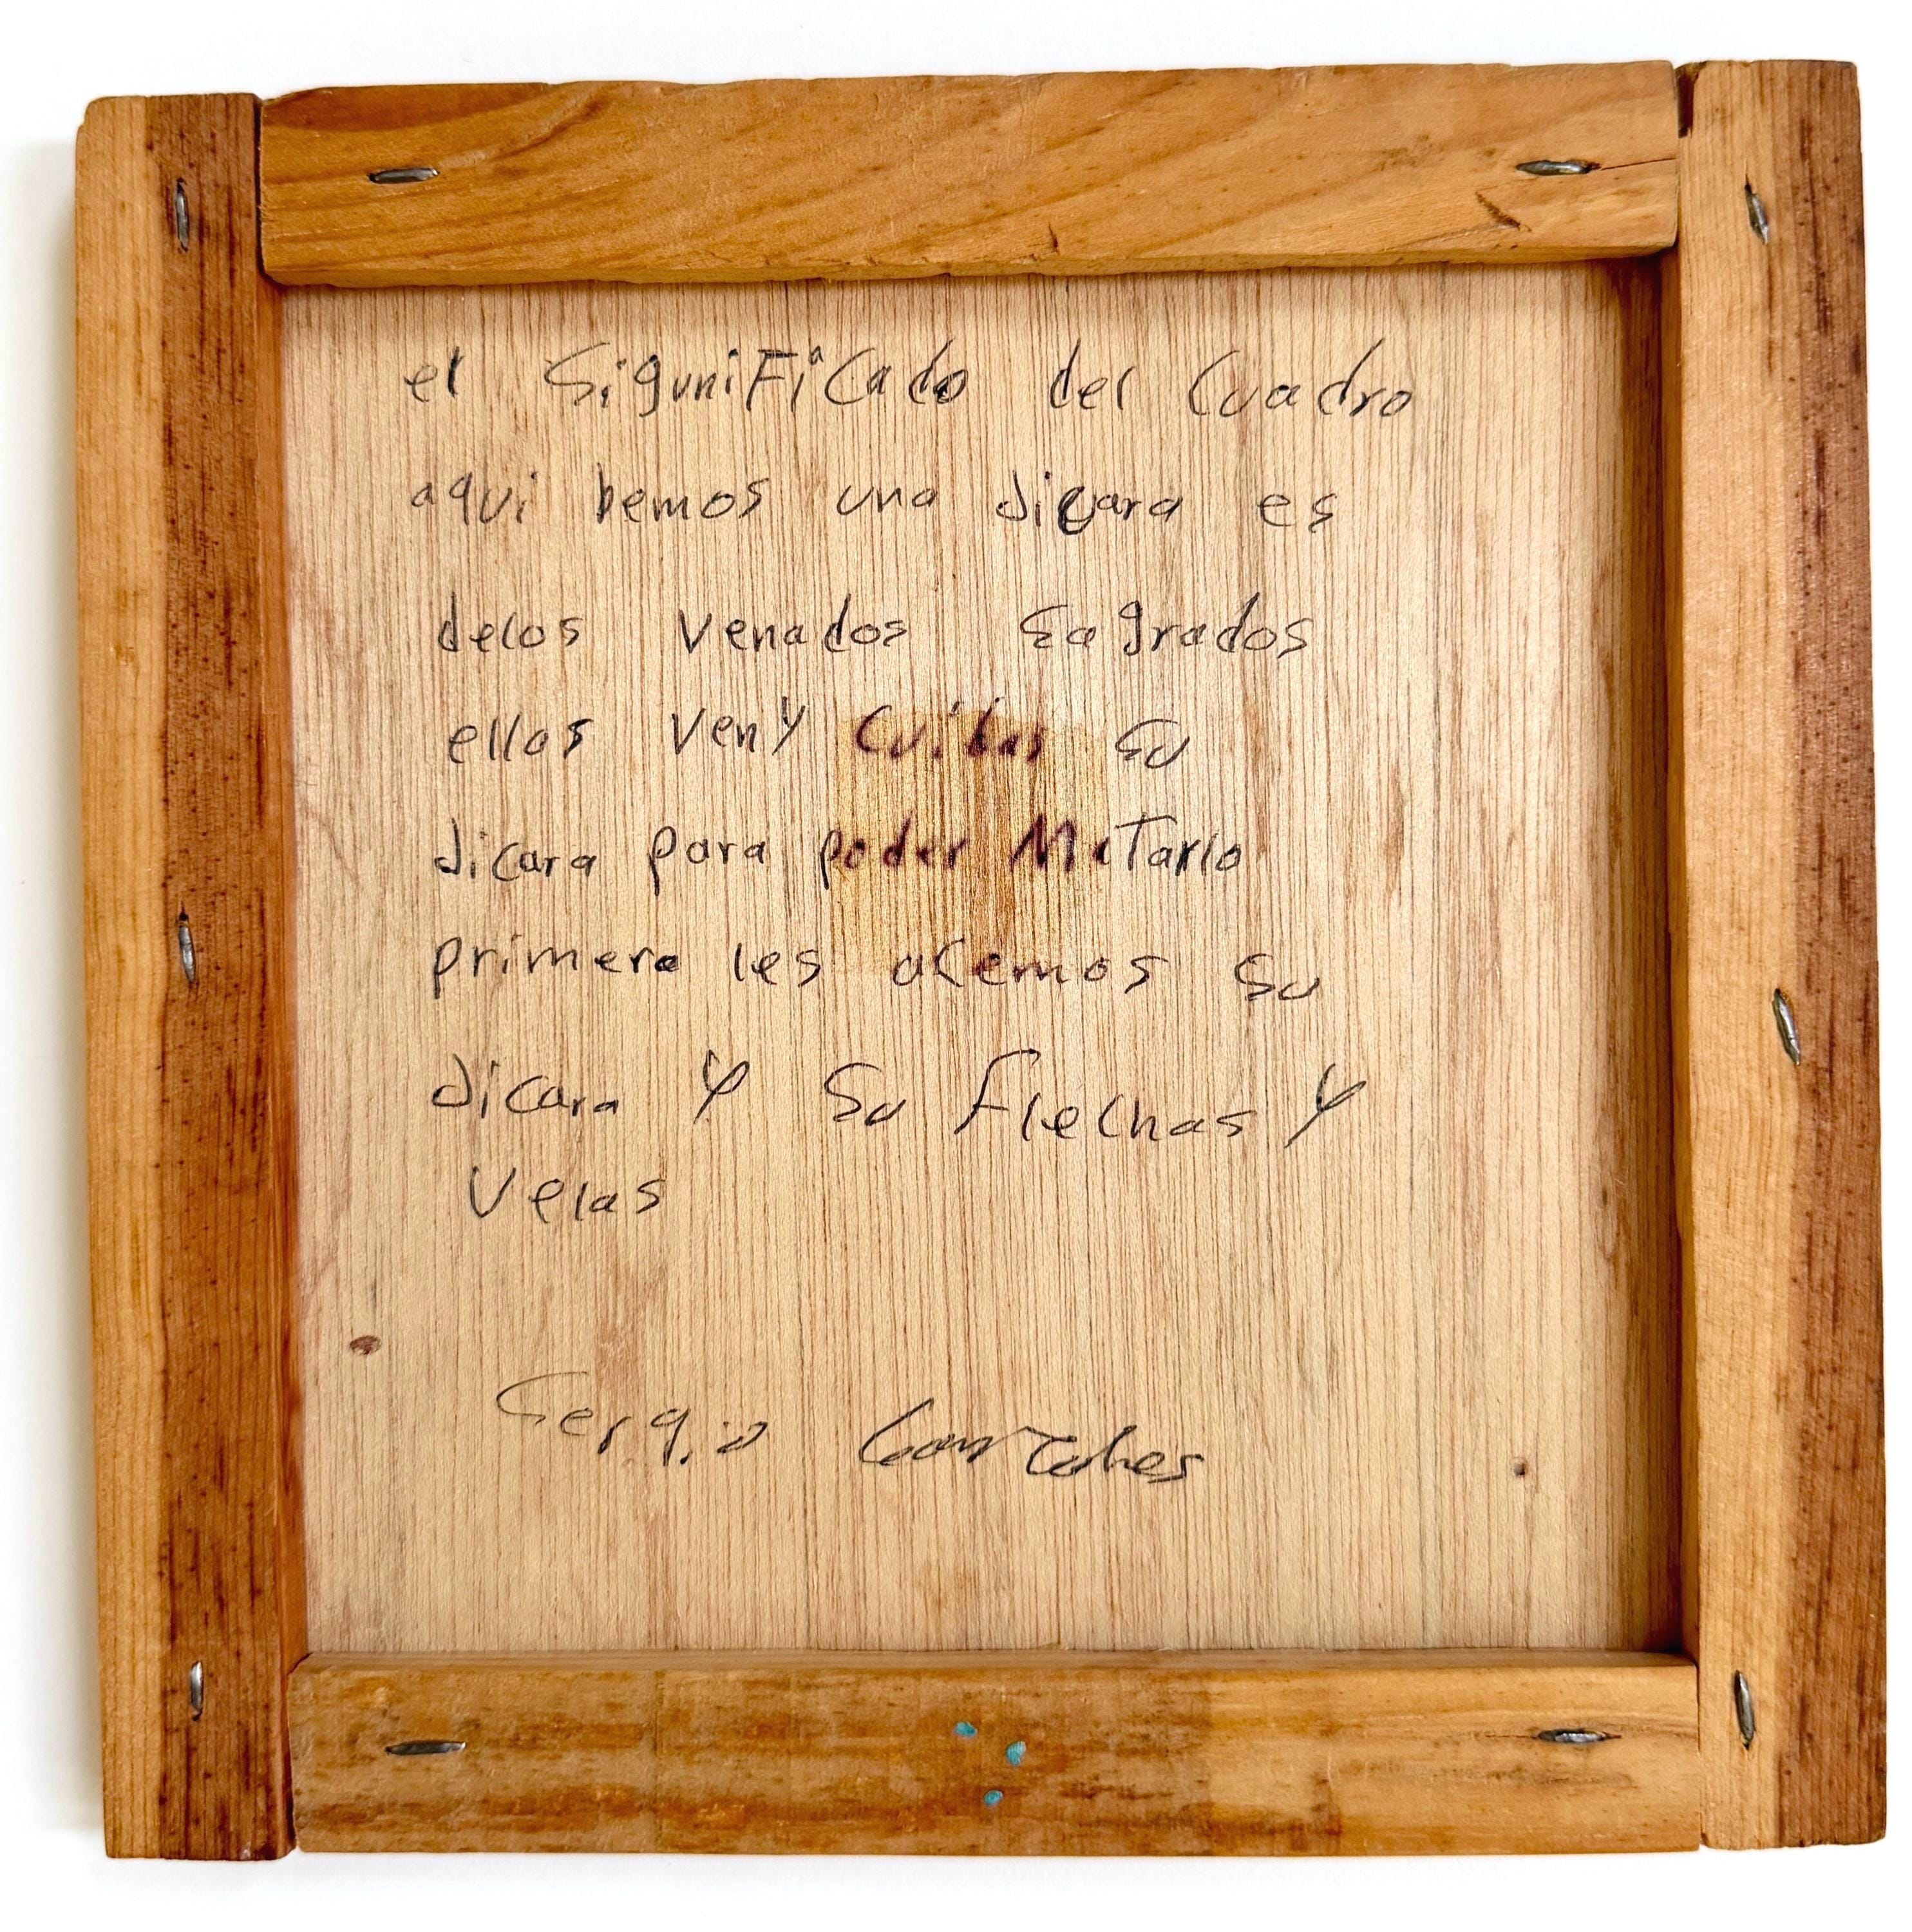 el SiguniFiCado del Cuadro
aqui bemos una Jicara es
delos venados Sagrados
ellos ven y Cuidas su
Jicara para poder MaTarlo
primero les aCemos Su
Jicara Y Su Flechas Y
Velas
Sergio